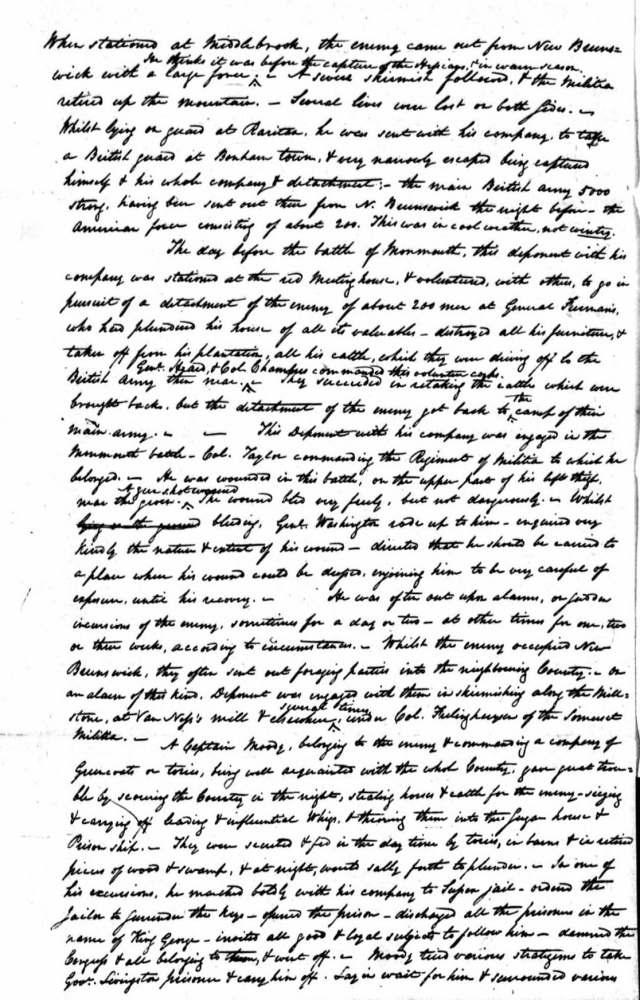 When stationed at Middlebrook, the enemy came out from New Bruns=
He thinks it was before the capture of the Hessians, & in warm season
wick with a large force; – A severe skirmish followed, & the Militia
retired up the mountain. – Several lives were lost on both sides. –
Whilst lying on guard at Raritan, he was sent with his company, to take
a British guard at Bonham town, & very narrowly escaped being captured
himself & his whole company & detachment; – the main British army 5000
strong, having been sent out there from N. Brunswick the night before – the
American force consisting of about 200. This was in cool weather, not wintry.
The day before the battle of Monmouth, this deponent with his
company was stationed at the red Meeting house, & volunteered, with others, to go in
pursuit of a detachment of the enemy of about 200 men at General
who had plundered his house of all its valuables – destroyed all his furniture, &
taken off from his plantation, all his cattle, which they were driving off to the
Genl. & Col. commanded this volunteer corps.
British army then near. – They succeeded in retaking the cattle which were
brought back. but the detachment of the enemy got back to the camp of their
main army. – – This Deponent with his company was engaged in the
Monmouth battle – Col. Taylor commanding the Regiment of Militia to which he
belonged. – He was wounded in this battle, on the upper part of his left thigh,
A gun shot wound
near the groin. – The wound bled very freely, but not dangerously. – Whilst
lying on the ground bleeding, Genl. Washington rode up to him – enquired very
kindly the nature & extent of his wound – directed that he should be carried to
a place where his wound could be dressed, enjoining him to be very careful of
exposure, until his recovery. – He was often out upon alarms, or sudden
incursions of the enemy, sometimes for a day or two – at other times for one, two
or three weeks, according to circumstances. – Whilst the enemy occupied New
Brunswick, they often sent out foraging parties into the neighbouring County. – On
an alarm of this kind, Deponent was engaged with them in skirmishing along the Mill=
several times
stone, at Van Ness's mill & elsewhere, under Col. Frelinghuysen of the Somerset
Militia. – A Captain Moody, belonging to the enemy & commanding a company of
Greencoats or tories, being well acquainted with the whole County, gave great trou=
ble by scouring the Country in the night, stealing horses & cattle for the enemy – seizing
& carrying off leading & influential Whigs, & throwing them into the Sugar house &
Prison ship. – They were secreted & fed in the day time by tories, in barns & in retired
pieces of wood & swamp, & at night, would sally forth to plunder. – In one of
his excursions, he marched boldly with his company to jail – ordered the
Jailor to surrender the keys – opened the prison – discharged all the prisoners in the
name of King George – invited all good & loyal subjects to follow him – damned the
Congress & all belonging to them, & went off. – Moody tried various stratagems to take
Gov. Livingston prisoner & carry him off. Lay in wait for him & surrounded various